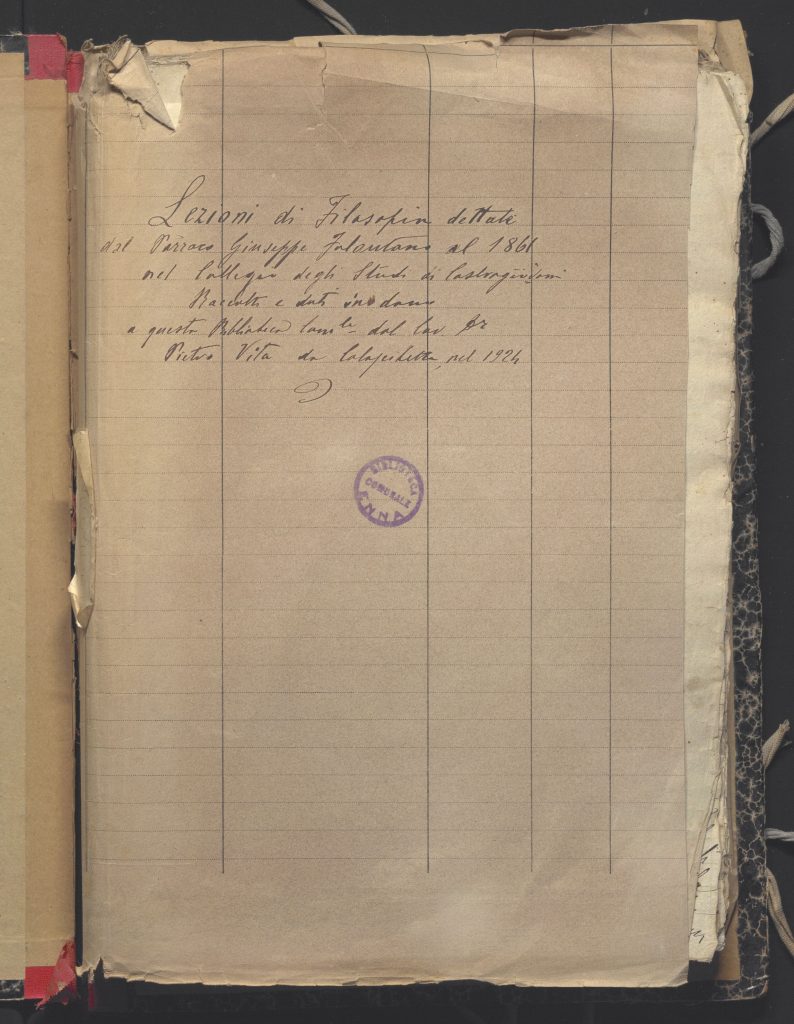 Lezioni di Filosofia dettate
dal Parroco Giuseppe al 1861
nel Collegio degli Studi di Castrogiovanni
Raccolti e dati in dono
a questa Biblioteca Com.le dal Cav Dr
Pietro Vita da Calascibetta, nel 1924
BIBLIOTECA
COMUNALE
ENNA